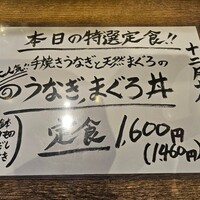 本日の特選定食!!
大人気!! 手焼きうなぎと天然まぐろの
のうなぎ、まぐろ丼
定食 1,600円
(1460円)